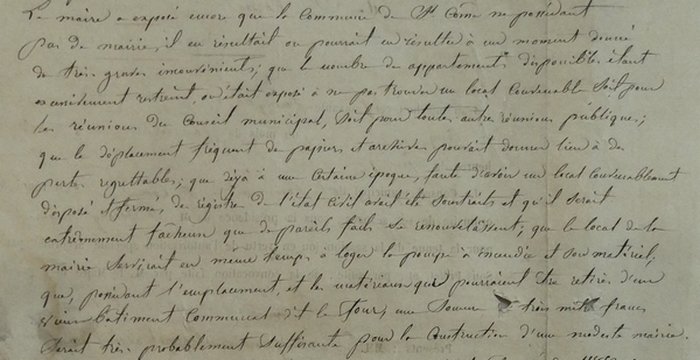 Le maire a exposé encore que la Commune de St Côme ne possédant
pas de mairie, il en résultait ou pourrait en résulter à un moment donné
de très graves inconvénients; que le nombre des appartements disponibles étant
excessivement restreint, on était exposé à ne pas trouver un local convenable soit pour
les réunions du Conseil municipal, soit pour toutes autre réunions publiques;
que le déplacement fréquent de papiers et archives pouvait donner lieu à des
pertes regrettables; que déjà à une certaine époque, faute d'avoir un local convenablement
disposé et fermé, des registres de l'état civil avait été soustraits et qu'il serait
extrêmement fâcheux que de pareils faits se renouvelassent; que le local de la
mairie servirait en même temps à loger la pompe à incendie et son matériel;
que, possédant l'emplacement, et les matériaux qui pourraient être retirés d'un
vieux bâtiment Communal dit la Tour, une Somme de très mille francs
serait très probablement suffisante pour la Construction d'une modeste mairie.